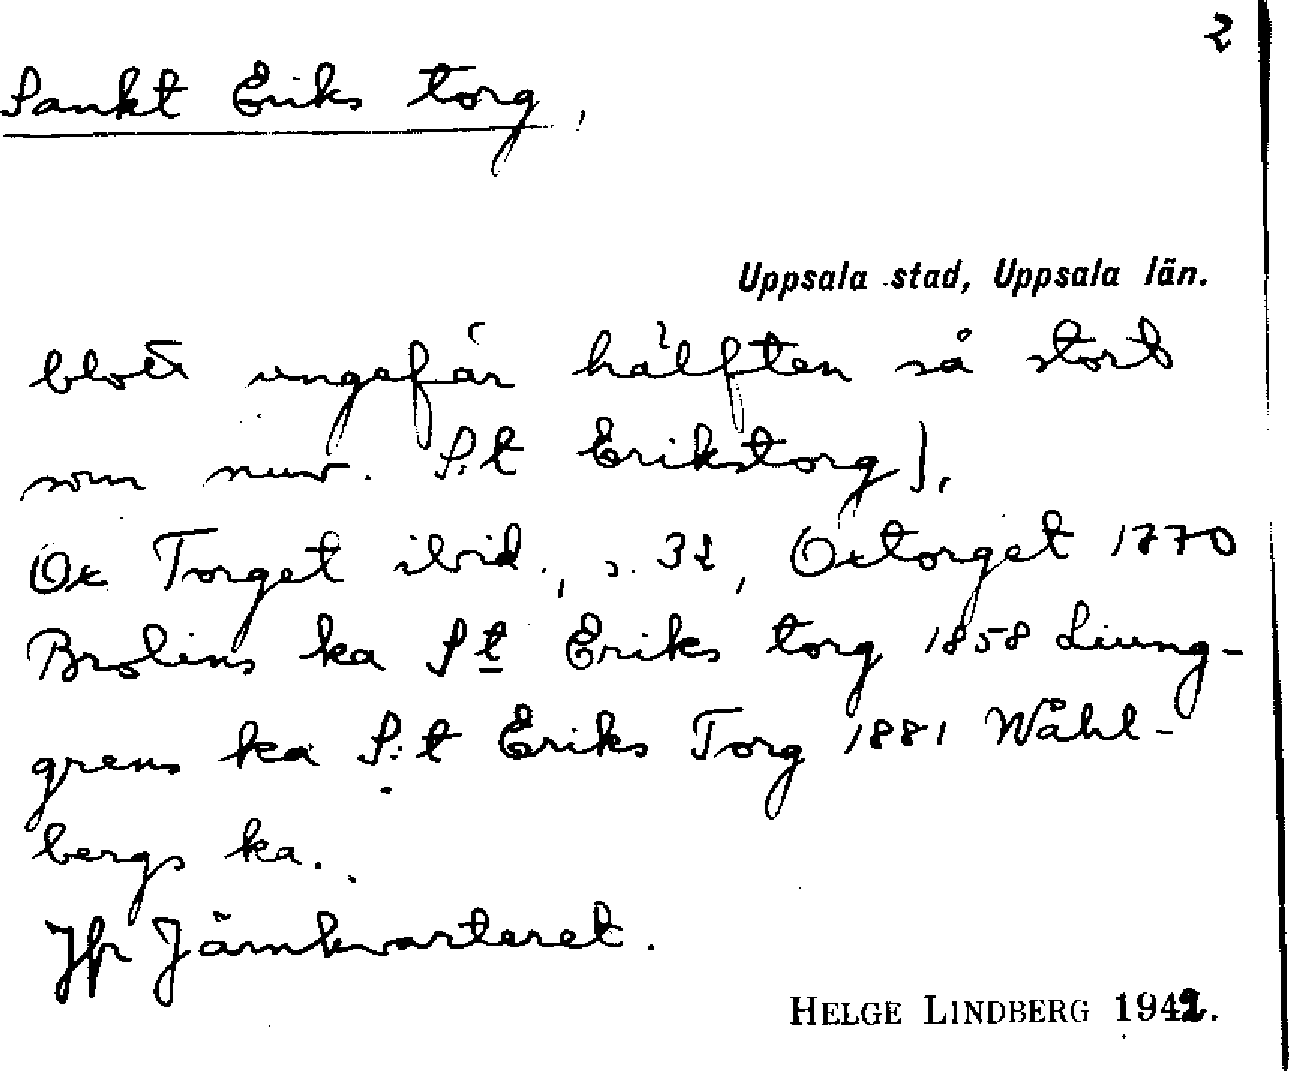 2
Sankt Eriks torg,
Uppsala stad, Uppsala län.
blott ungefär hälften så stort
som nuv. S:t Erikstorg),
Ox Torget ibid., s. 32, Oxtorget 1770
Brolins ka St Eriks torg 1858 Liung-
grens ka S:t Eriks Torg 1881 Wåhl-
bergs ka.
Jfr Järnkvarteret.
HELGE LINDBERG 1942.